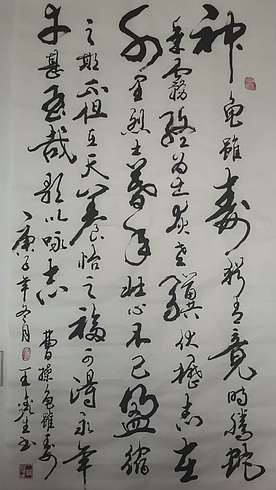 神龜雖壽猶有竟時騰蛇
乘霧終為土灰老驥伏櫪志在
千里烈士暮年壯心不已盈縮
之期不但在天養怡之福可得永年
幸甚至哉歌以咏志
曹操龜雖壽
庚子年冬月王生书